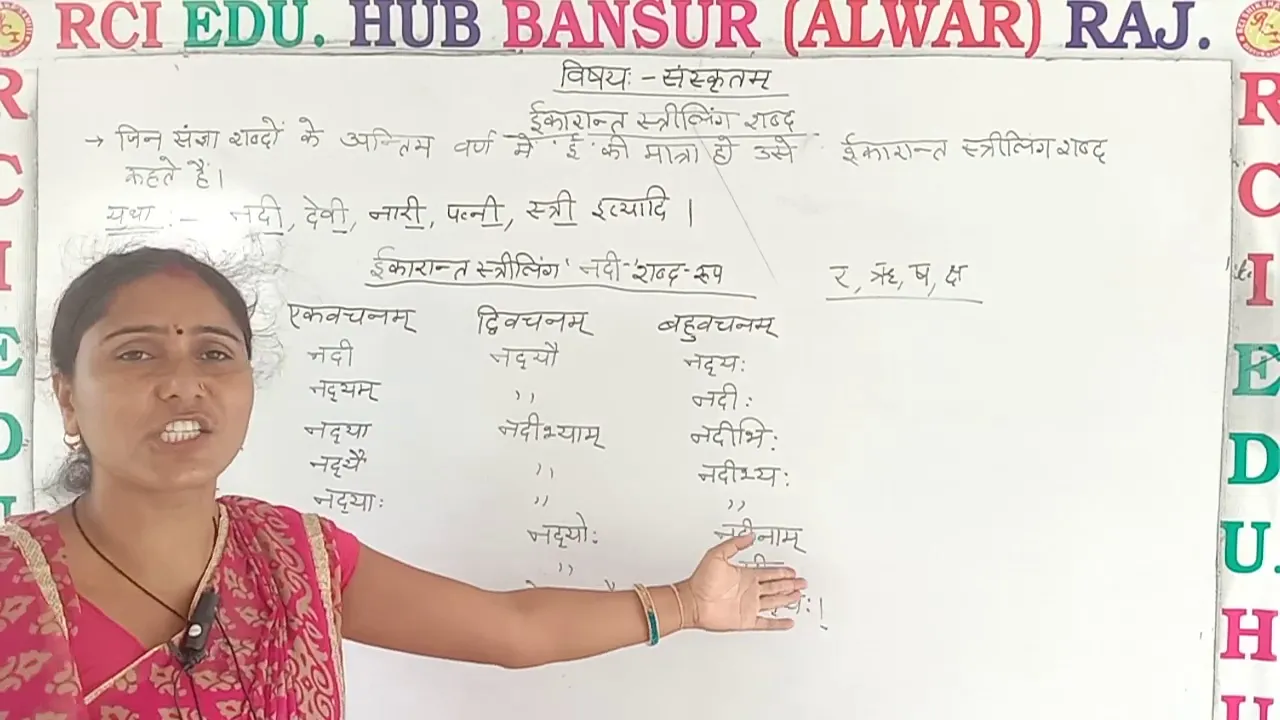 RCI EDU. HUB BANSUR (ALWAR) RAJ.
विषयः - संस्कृतम्
ईकारान्त स्त्रीलिंग शब्द
→ जिन संज्ञा शब्दों के अन्तिम वर्ण में 'ई' की मात्रा हो उसे ईकारान्त स्त्रीलिंग शब्द
कहते हैं।
यथा :- नदी, देवी, नारी, पत्नी, स्त्री इत्यादि ।
ईकारान्त स्त्रीलिंग 'नदी' शब्द-रूप
र, ऋ, ष, क्ष
एकवचनम् द्विवचनम् बहुवचनम्
नदी नद्यौ नद्यः
नद्यम् ,, नदीः
नद्या नदीभ्याम् नदीभिः
नद्यै ,, नदीभ्यः
नद्याः ,, ,,
नद्योः नदीनाम्
,,
R C I E D U. H U